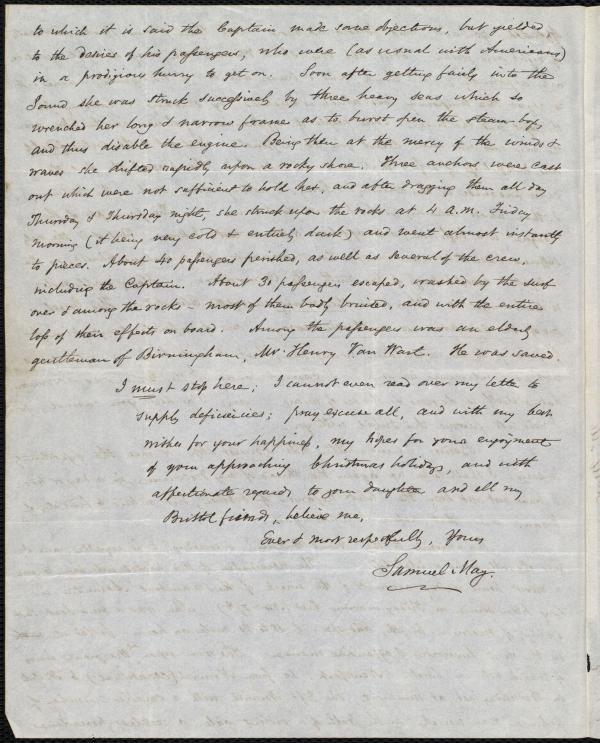 to which it is said the Captain made some objections, but yielded
to the desires of his passengers, who were (as usual with Americans)
in a prodigious hurry to get on. Soon after getting fairly into the
Sound she was struck successively by three heavy seas which so
wrenched her long & narrow frame as to burst open the steam-box,
and thus disable the engine. Being then at the mercy of the winds &
waves she drifted rapidly upon a rocky shore. Three anchors were cast
out which were not sufficient to hold her, and after dragging them all day
Thursday & Thursday night, she struck upon the rocks at 4 A.M. Friday
morning (it being very cold & entirely dark) and went almost instantly
to pieces. About 40 passengers perished, as well as several of the crew,
including the Captain. About 30 passengers escaped, washed by the surf
over & among the rocks - most of them badly bruised, and with the entire
loss of their effects on board. Among the passengers was an elderly
gentleman of Birmingham, Mr. Henry Van Wart. He was saved.
I must stop here; I cannot even read over my letter to
supply deficiencies; pray excuse all, and with my best
wishes for your happiness, my hopes for your enjoyment
of your approaching Christmas holidays, and with
affectionate regards to your daughter and all my
Bristol friends, believe me,
Ever & most respectfully, Yours
Samuel May.